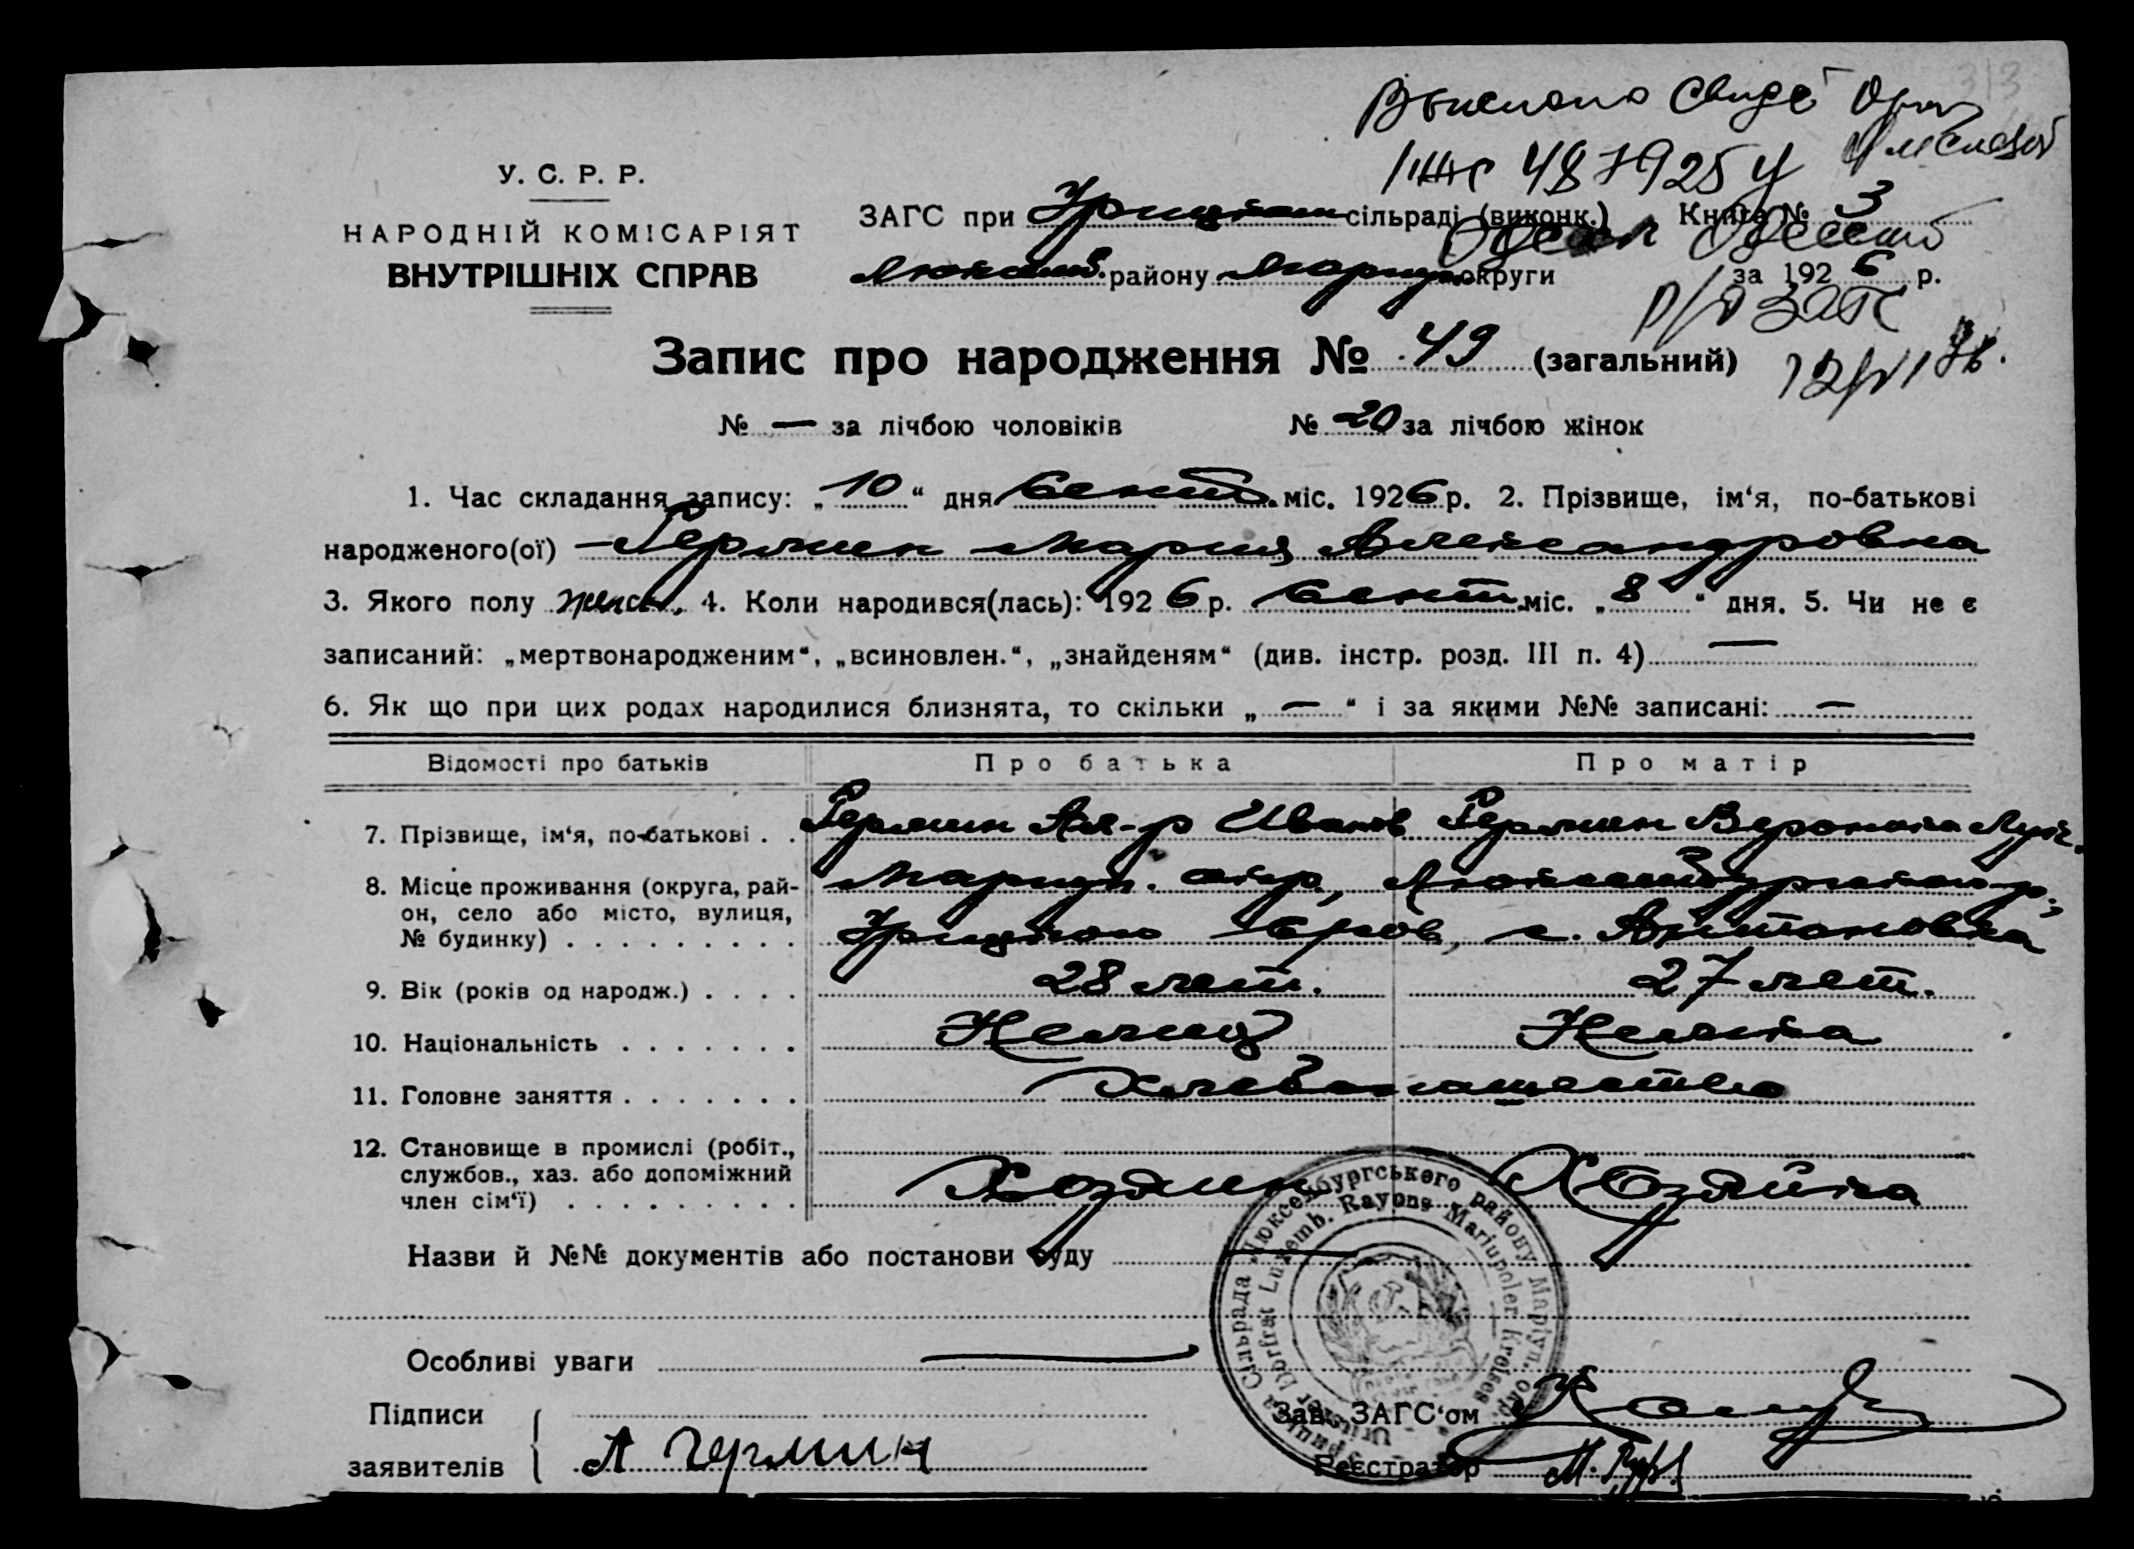 Выслано Свид
487925
У. С. Р. Р.
НАРОДНІЙ КОМІСАРІЯТ
ВНУТРІШНІХ СПРАВ
ЗАГС при Урицком сільраді (виконк.) Книга № 3
Люксемб. району Мариуп. округи за 1926 р.
р/о ЗАГС
Запис про народження № 49 (загальний)
№ — за лічбою чоловіків № 20 за лічбою жінок
1. Час складання запису: „10“ дня Сент. міс. 1926 р. 2. Прізвище, ім‘я, по-батькові
народженого(ої) — Гермин Мария Александровна
3. Якого полу женск. 4. Коли народився(лась): 1926 р. Сент. міс. „8“ дня. 5. Чи не є
записаний: „мертвонародженим“, „всиновлен.“, „знайденям“ (див. інстр. розд. III п. 4) —
6. Як що при цих родах народилися близнята, то скільки „—“ і за якими №№ записані: —
Відомості про батьків Про батька Про матір
7. Прізвище, ім‘я, по-батькові . . Гермин Ал-р Иванов Гермин Вероника
8. Місце проживання (округа, рай- Мариуп. окр., Люксембургского р.,
он, село або місто, вулиця,
№ будинку) . . . . . . . . . Урицкого с. Антоновка
9. Вік (років од народж.) . . . . 28 лет. 27 лет.
10. Національність . . . . . . . Немец Немка
11. Головне заняття . . . . . . . Хлебопашество
12. Становище в промислі (робіт.,
службов., хаз. або допоміжний
член сім‘ї) . . . . . . . . . Хозяин Хозяйка
Назви й №№ документів або постанови суду —
Особливі уваги —
Сільрада Люксенбургського району Маріуп. окр.
Dorfrat Luxemb. Rayons Mariupoler Kreises
Підписи
заявителів А Гермин
Зав. ЗАГС‘ом
Реєстратор